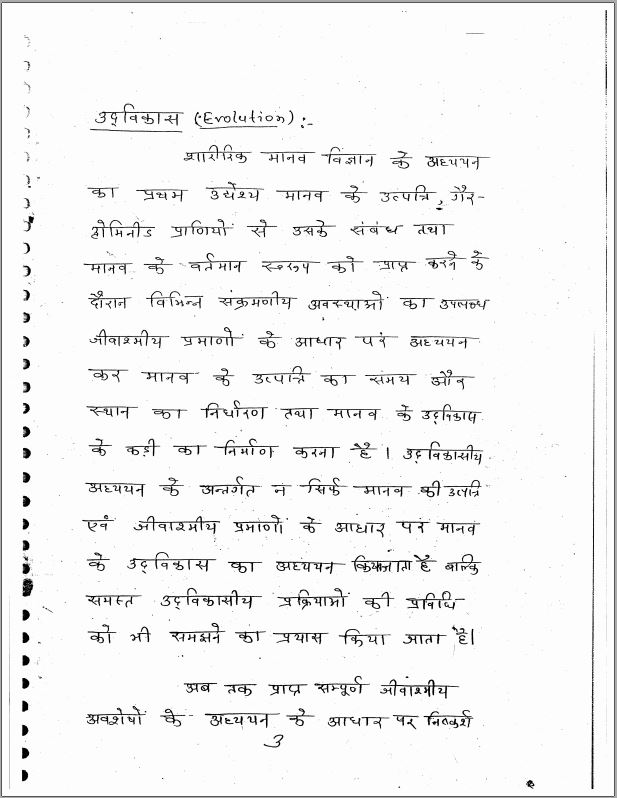 उद्‌विकास (Evolution) :-
शारीरिक मानव विज्ञान के अध्ययन
का प्रथम उद्येश्य मानव के उत्पत्ति, गैर-
होमिनीड प्राणियों से उसके संबंध तथा
मानव के वर्तमान स्वरूप को प्राप्त करने के
दौरान विभिन्न संक्रमणीय अवस्थाओं का उपलब्ध
जीवाश्मीय प्रमाणों के आधार पर अध्ययन
कर मानव के उत्पत्ति का समय और
स्थान का निर्धारण तथा मानव के उद्‌विकास
के कड़ी का निर्माण करना है। उद्‌विकासीय
अध्ययन के अन्तर्गत न सिर्फ मानव की उत्पत्ति
एवं जीवाश्मीय प्रमाणों के आधार पर मानव
के उद्‌विकास का अध्ययन किया जाता है बल्कि
समस्त उद्‌विकासीय प्रक्रियाओं की प्रविधि
को भी समझने का प्रयास किया जाता है।
अब तक प्राप्त सम्पूर्ण जीवाश्मीय
अवशेषों के अध्ययन के आधार पर निष्कर्ष
3